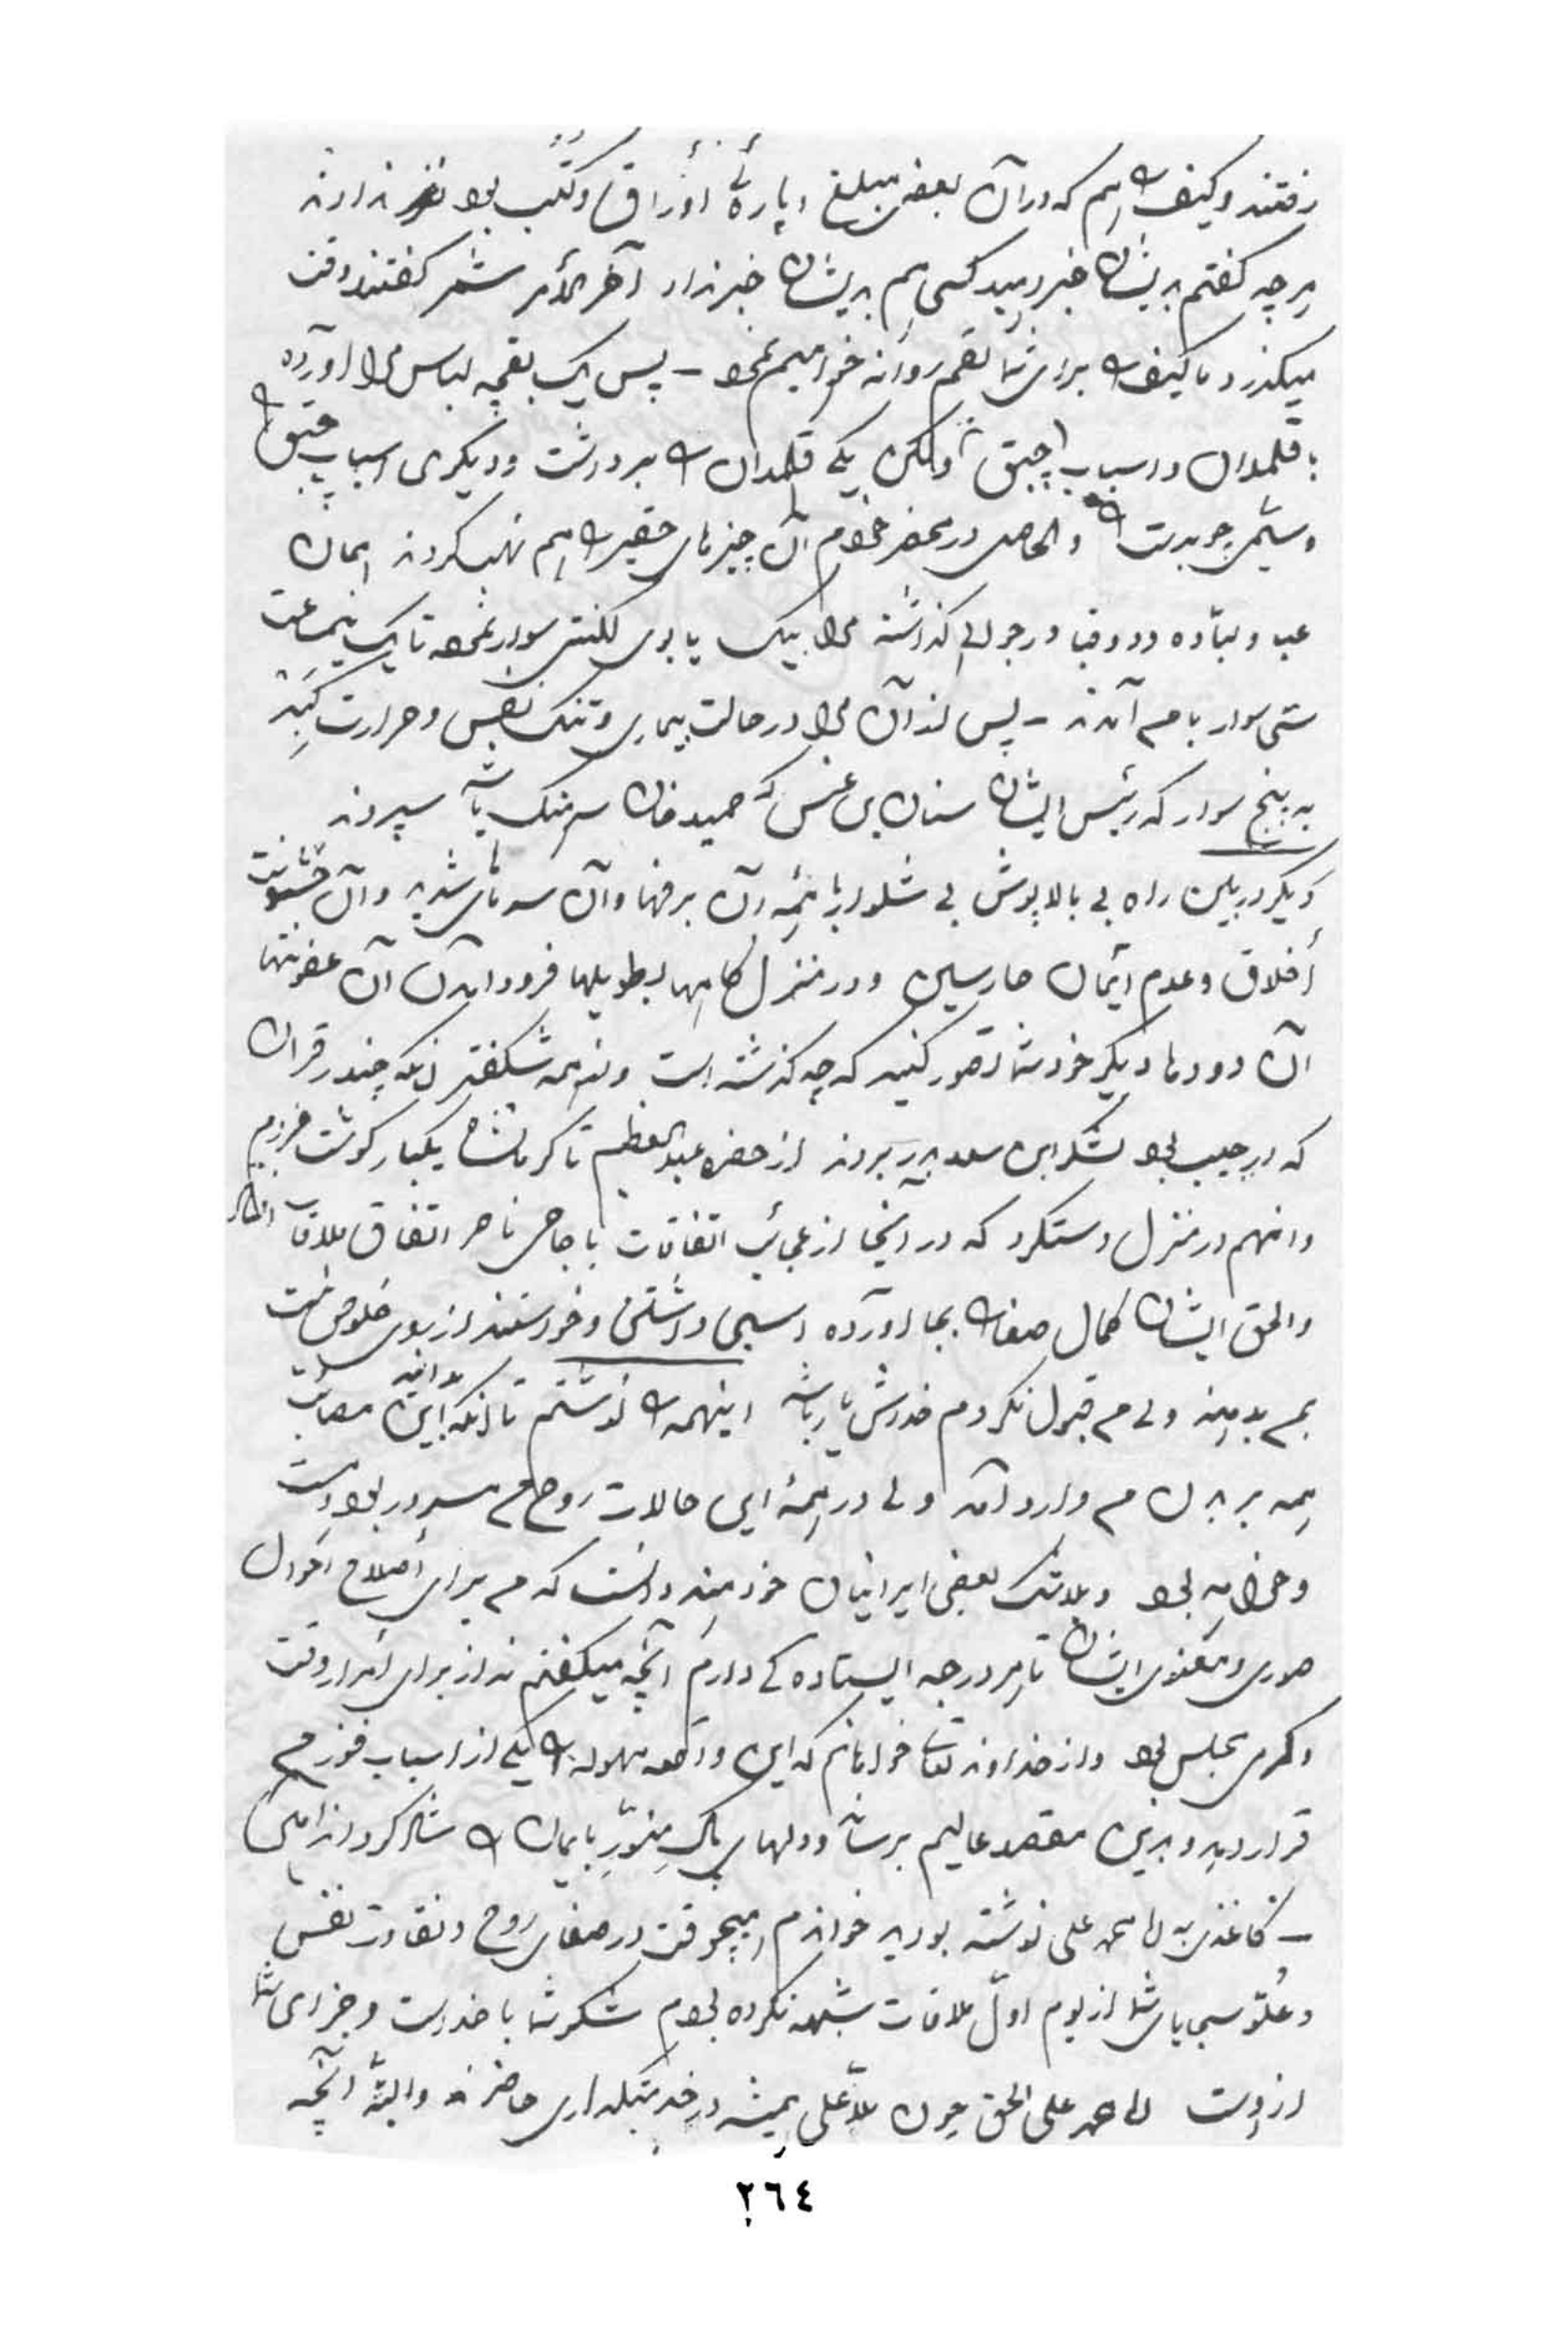 رفتند و کیف را هم که در آن بعضی مبلغ و پارهٔ اوراق و کتب بود ندادند
هر چه گفتم بایشان خبر دهید کسی هم بایشان خبر نداد آخر الأمر شمر گفتند وقت
میگذرد ما کیف را برای شما بقم روانه خواهیم نمود – پس یک بقچه لباس مرا آورده
با قلمدان و اسباب چپق ولکن یکی قلمدان را برداشت و دیگری اسباب چپق را
و سیّمی چوبدست را والحاصل در محضر خودم آن چیزهای حقیر را هم نهب کردند همان
عبا و لبّاده و دو قبا در جوالی گذاشته مرا بیک یابوی لکنتی سوار نموده تا یک نیمساعت
ستّی سوار با من آمدند – پس از آن مرا در حالت بیماری و تنگ نفس و حرارت کبد
به پنج سوار که رئیس ایشان سنان بن عنس که حمید خان سرهنگ باشد سپردند
دیگر در بین راه بی بالاپوش بی شلوار با همهٔ آن برفها و آن سرمای شدید و آن خشونت
أخلاق و عدم ایمان حارسین و در منزل گاهها بطویلها فرود آمدن آن عفونتها
آن دودها دیگر خود شما تصور کنید که چه گذشته است و از همه شگفتر آنکه چند قران
که در جیب بود لشکر ابن سعد بردند از حضرة عبد العظیم تا کرمانشاه یکبار گوشت خوردم
و انهم در منزل دستکرد که در آنجا از عجائب اتفاقات با حاجی ناصر اتفاق ملاقات افتاد
والحق ایشان کمال صفا را بجا آورده اسبی داشتند و خواستند از روی خلوص نیت
بمن بدهند ولی من قبول نکردم خدایش یار باشد اینهمه را نوشتم تا آنکه بدانید این مصائب
همه بر بدن من وارد آمد ولی در همهٔ این حالات روح من مسرور بود و هست
و خواهد بود و بلاشک بعضی ایرانیان خواهند دانست که من برای اصلاح احوال
صوری و معنوی ایشان تا هر درجه ایستاده گی دارم آنچه میگفتم نه از برای امرار وقت
و گرمی مجلس بود و از خداوند تعالی خواهانم که این واقعه مهوله را یکی از اسباب فوز من
قرار دهد و بدین مقصد عالیم برساند و دلهای پاک منوّر بایمان را شاد گرداند آمین
– کاغذی به لاحمد علی نوشته بودید خواندم هیچوقت در صفای روح و نقاوت نفس
و علوّ سجایای شما از یوم اوّل ملاقات شبهه نکرده بودم شکر شما با خداست و جزای شما
از اوست لاحمد علی الحق چون ملا علی همیشه در خدمتگذاری حاضرند والبته آنچه
٢٦٤